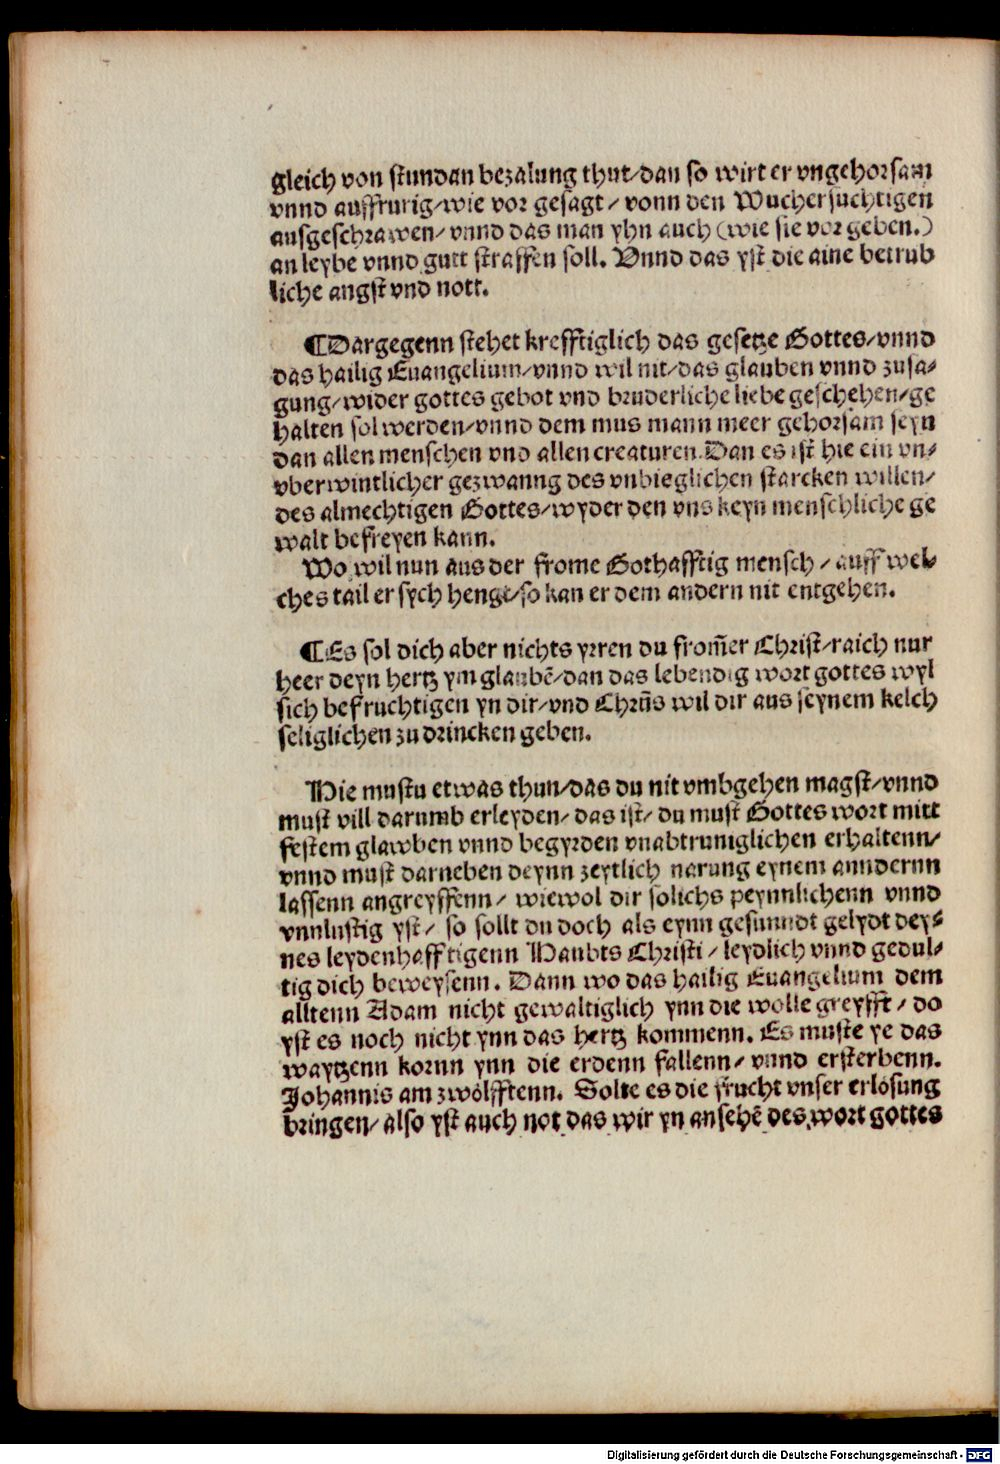 gleich von stundan bezalung thut/dan so wirt er vngehorsam
vnnd auffrurig/wie vor gesagt/ vonn den Wuchersuchtigen
ausgeschrawen/ vnnd das man yhn auch (wie sie vor geben.)
an leybe vnnd gutt straffen soll. Vnnd das yst die aine betrub
liche angst vnd nott.
¶Dargegenn stehet krefftiglich das gesetze Gottes/vnnd
das hailig Euangelium/vnnd wil nit/das glauben vnnd zusa-
gung/wider gottes gebot vnd bruderliche liebe geschehen/ge
halten sol werden/vnnd dem mus mann meer gehorsam seyn
dan allen menschen vnd allen creaturen. Dan es ist hie ein vn-
vberwintlicher gezwanng des vnbieglichen starcken willen/
des almechtigen Gottes/wyder den vns keyn menschliche ge
walt befreyen kann.
Wo wil nun aus der frome Gothafftig mensch/auff wel-
ches tail er sych hengt/so kan er dem andern nit entgehen.
¶Es sol dich aber nichts yrren du from̄er Christ/raich nur
heer deyn hertz ym glaubē/dan das lebendig wort gottes wyl
sich befruchtigen yn dir/vnd Chrūs wil dir aus seynem kelch
seliglichen zu drincken geben.
Hie mustu etwas thun/das du nit vmbgehen magst/vnnd
must vill darumb erleyden/ das ist/ du must Gottes wort mitt
festem glawben vnnd begyrden vnabtruniglichen erhaltenn/
vnnd must darneben deynn zeytlich narung eynem anndernn
lassenn angreyffenn/ wiewol dir solichs peynnlichenn vnnd
vnnlustig yst/ so sollt du doch als eynn gesunndt gelydt dey-
nes leydenhafftigenn Haubts Christi/ leydlich vnnd gedul-
tig dich beweysenn. Dann wo das hailig Euangelium dem
alltenn Adam nicht gewaltiglich ynn die wolle greyfft/ do
yst es noch nicht ynn das hertz kommenn. Es muste ye das
waytzenn kornn ynn die erdenn fallenn/ vnnd ersterbenn.
Johannis am zwölfftenn. Solte es die frucht vnser erlösung
bringen/ also yst auch not das wir yn ansehē des wort gottes
Digitalisierung gefördert durch die Deutsche Forschungsgemeinschaft - DFG